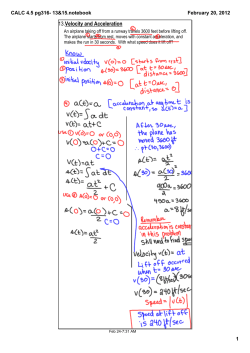 CALC 4.5 pg316- 13&15.notebook
February 20, 2012
13. Velocity and Acceleration
An airplane taking off from a runway travels 3600 feet before lifting off.
The airplane starts from rest, moves with constant acceleration, and
makes the run in 30 seconds. With what speed does it lift off?
Know
initial velocity v(0)=0 (starts from rest)
position s(30)=3600 [at t=30 sec, distance=3600]
initial position s(0)=0 [at t=0 sec, distance=0]
a(t)=a [acceleration at any time is constant, so 
v(t)=∫a dt
v(t)=at+C
use v(0)=0 or (0,0)
v(0)=a(0)+C=0
0+C=0
C=0
v(t)=at
s(t)=∫at dt
s(t)=at²/2+C
use s(0)=0 or (0,0)
s(0)=a(0)+C=0
C=0
s(t)=at²/2
After 30 sec, the plane has moved 3600 feet
pt (30,3600)
s(t)=at²/2
s(30)=a(30)²/2=3600
900a/2=3600
450a=3600
a=8 ft/s²
Remember
acceleration is constant in this problem
Still need to find speed
Velocity v(t)=at
Lift off occurred when t=30 sec
v(30)=240 ft/sec
Speed=|v(t)|
Speed at lift off is 240 ft/sec
Feb 24-7:31 AM
1